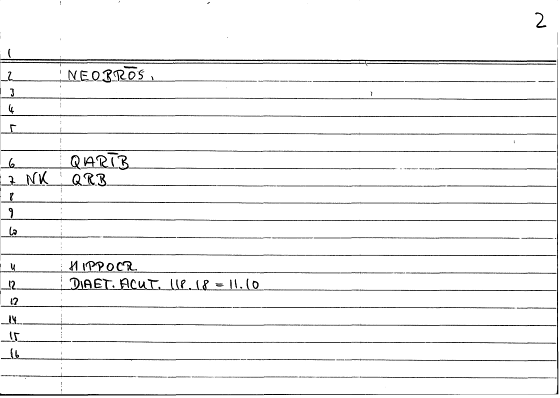 2
1
2 NEOBRŌS.
3
4
5
6 QARĪB
7 NK QRB
8
9
10
11 HIPPOCR
12 DIAET. ACUT. 118.18 = 11.10
13
14
15
16